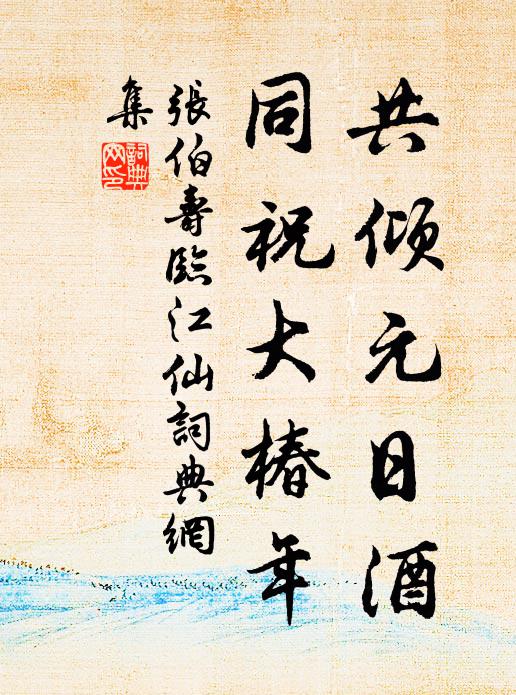 共傾元日酒
同祝大椿年
張伯壽臨江仙詞典網
集
詞典網印